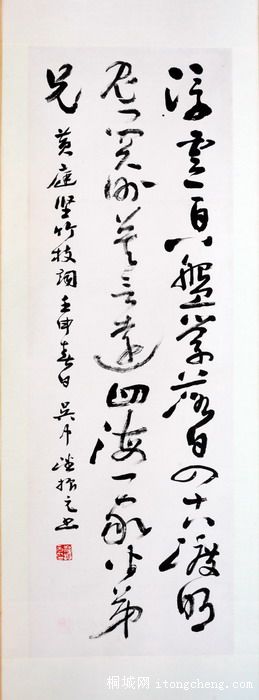 浮雲一百八盤縈落日四十八渡明
鬼门关外莫言遠四海一家皆弟
兄 黄庭坚竹枝詞壬申春日 吴下潘振元书
桐城网 itongcheng.com